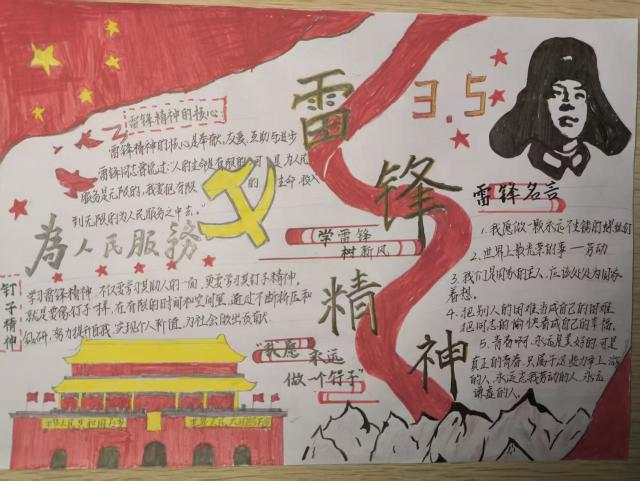 雷锋精神
3.5
雷锋精神的核心
雷锋精神的核心是奉献、友爱、互助与进步
雷锋同志曾说过:"人的生命是有限的,可是,为人民
服务是无限的,我要把有限的生命,投入
到无限的为人民服务之中去。"
為人民服務
钉子精神
学习雷锋精神,不仅要学习其助人的一面,更要学习其钉子精神。
就是要像钉子一样,在有限的时间和空间里,通过不断挤压和
钻研,努力提升自我,实现个人价值,为社会做出贡献
学雷锋
树新风
"我愿永远
做一个钉子"
雷锋名言
1.我愿做一颗永远不生锈的螺丝钉
2.世界上最光荣的事—劳动
3.我们是国家的主人,应该处处为国家
着想。
4.把别人的困难当成自己的困难,
把同志的愉快看成自己的幸福。
5.青春啊,永远是美好的,可是
真正的青春,只属于这些力争上游
的人,永远忘我劳动的人,永远
谦虚的人。
中华人民共和国万岁
世界人民大团结万岁